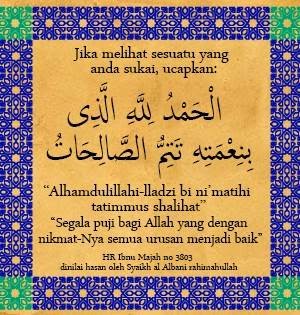 Jika melihat sesuatu yang
anda sukai, ucapkan:
الْحَمْدُ لِلَّهِ الَّذِى
بِنِعْمَتِهِ تَتِمُّ الصَّالِحَاتُ
“Alhamdulillahi-lladzi bi ni’matihi
tatimmus shalihat”
“Segala puji bagi Allah yang dengan
nikmat-Nya semua urusan menjadi baik”
HR Ibnu Majah no 3803
dinilai hasan oleh Syaikh al Albani rahimahullah